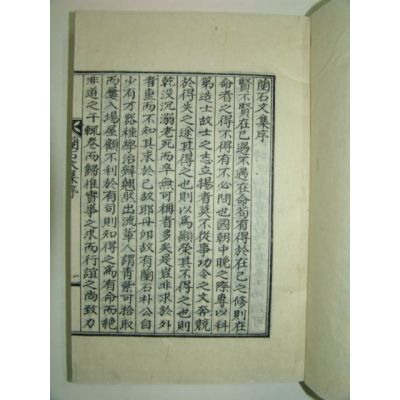 蘭石文集序
賢不賢在己遇不遇在命苟有得於在己之修則在
命者之得不得有不必問也國朝中晩之際專以科
第造士故士之志立揚者莫不從事功令之文奔競
於得失之途其得之也則以爲顯榮其不得之也則
乾沒沉溺老死而卒無可稱者多矣是豈非求於外
者重而不知其求於己故耶丹邱故有蘭石朴公自
少有才種學治辭翹然出流輩人謂靑紫可拾取
而屢入場屋顧不利於有司則知得之爲有命而絶
非道之干輒卷而歸惟實事之求而行誼之尚致力
蘭石文集序 一